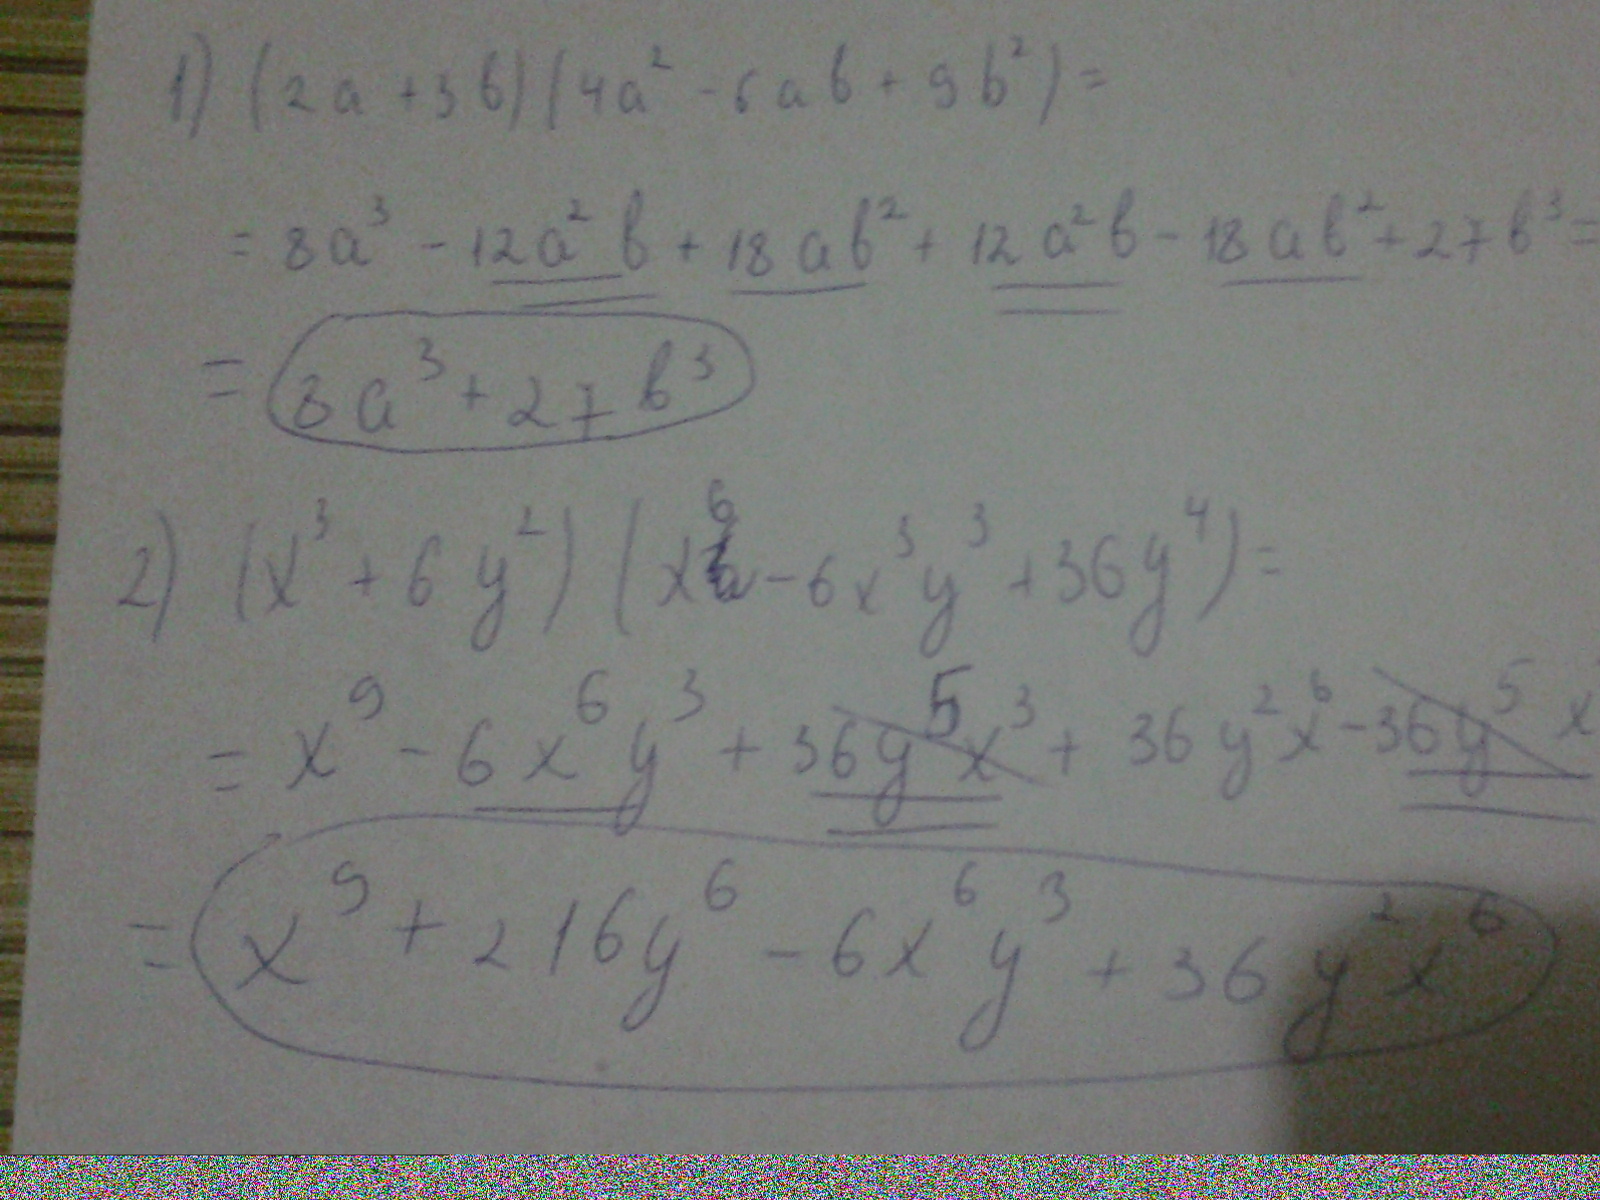 1) (2a + 3b)(4a² - 6ab + 9b²) =
= 8a³ - 12a²b + 18ab² + 12a²b - 18ab² + 27b³ =
= 8a³ + 27b³
2) (x³ + 6y²)(x⁶ - 6x³y³ + 36y⁴) =
= x⁹ - 6x⁶y³ + 36y⁵x³ + 36y²x⁶ - 36y⁵x
= x⁹ + 216y⁶ - 6x⁶y³ + 36y²x⁶